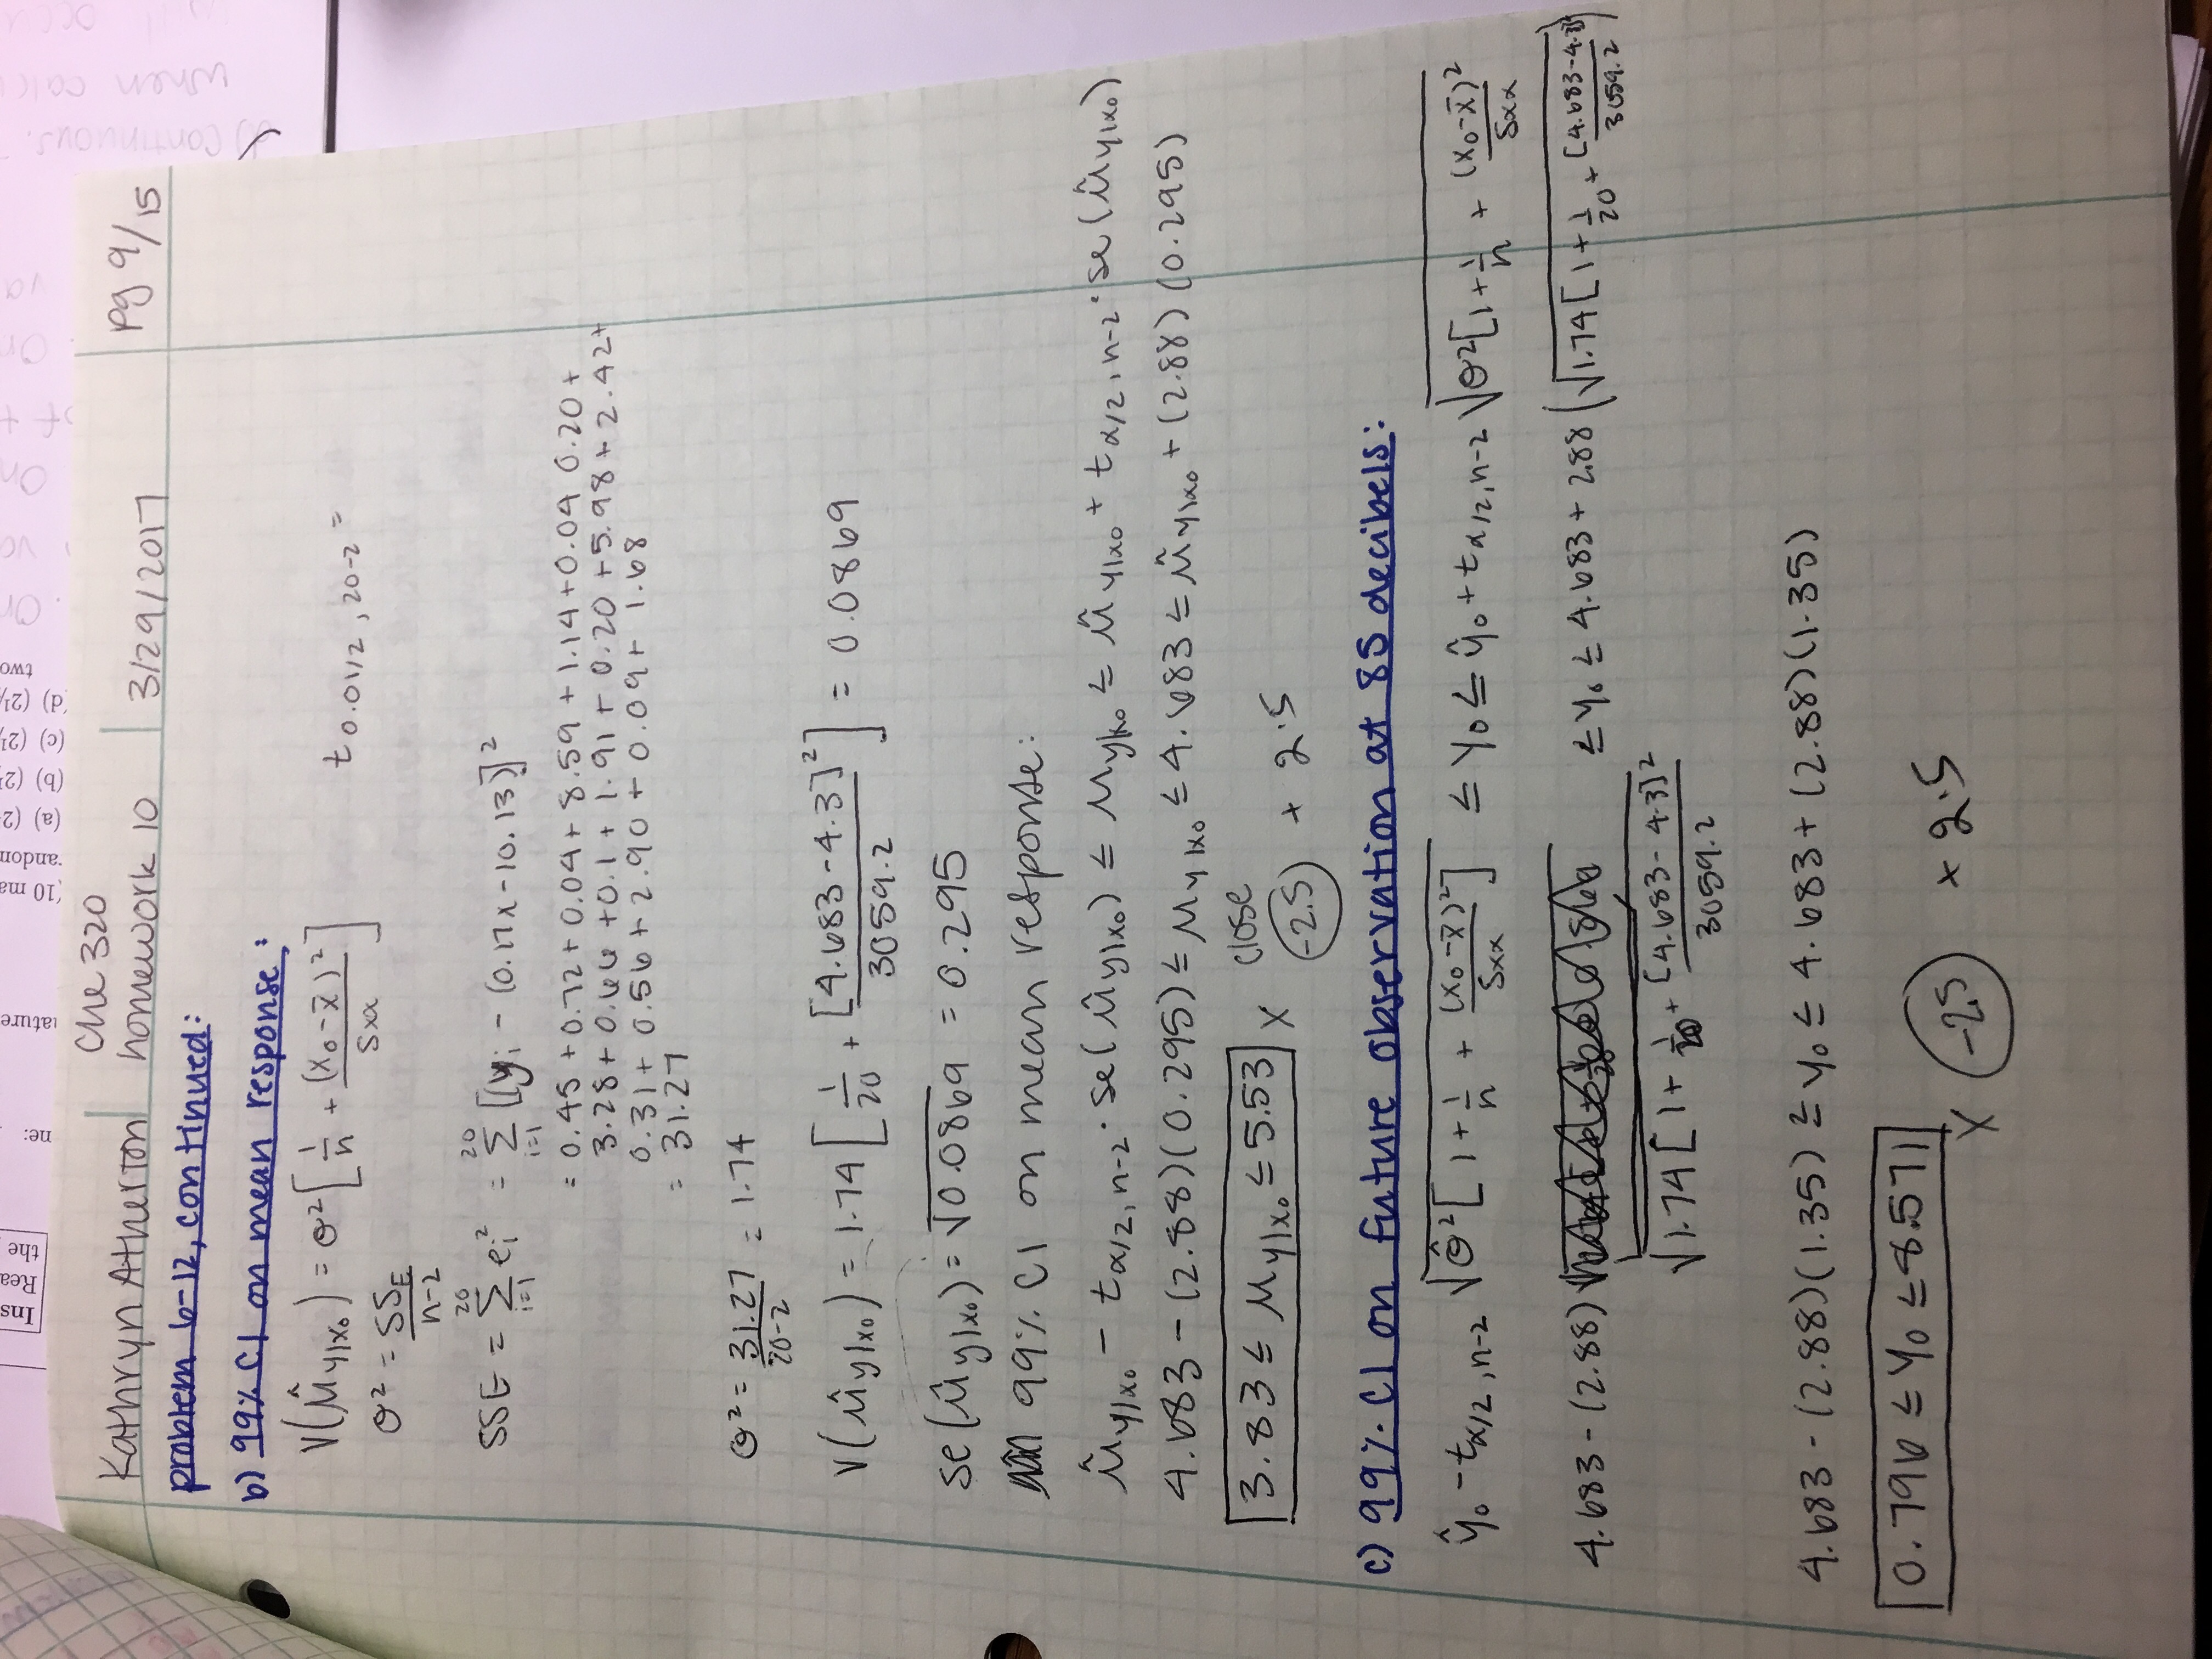 Ins
Rea
the
ne:
ature
[10 ma
andon
(a) (2
(b) (2
(c) (2
(d) (2
two
Kathryn Atherton
Che 320
homework 10
3/29/2017
pg 9/15
problem 6-12, continued:
b) 99% CI on mean response:
V(μ̂y|x₀) = σ²[1/n + (x₀-x̄)²/Sxx]
t 0.01/2, 20-2 =
σ² = SSE/n-2
SSE = Σ(i=1 to 20) ei² = Σ(i=1 to 20) [(yi - (0.17x-10.13)]²
= 0.45 + 0.72 + 0.04 + 8.59 + 1.14 + 0.04 0.20 +
3.28 + 0.66 + 0.1 + 1.91 + 0.20 + 5.98 + 2.42 +
0.31 + 0.56 + 2.90 + 0.09 + 1.68
= 31.27
σ² = 31.27/20-2 = 1.74
V(μ̂y|x₀) = 1.74[1/20 + [4.683-4.3]²/3059.2] = 0.0869
se(μ̂y|x₀) = √0.0869 = 0.295
99% CI on mean response:
μ̂y|x₀ - tα/2, n-2 · se(μ̂y|x₀) ≤ μy|x₀ ≤ μ̂y|x₀ + tα/2, n-2 · se(μ̂y|x₀)
4.683 - (2.88)(0.295) ≤ μy|x₀ ≤ 4.683 ≤ μ̂y|x₀ + (2.88)(0.295)
3.83 ≤ μy|x₀ ≤ 5.53 X
close
-2.5 + 2.5
c) 99% CI on future observation at 85 decibels:
ŷ₀ - tα/2, n-2 √σ̂²[1 + 1/n + (x₀-x̄)²/Sxx] ≤ Y₀ ≤ ŷ₀ + tα/2, n-2 √σ²[1 + 1/n + (x₀-x̄)²/Sxx
4.683 - (2.88) ≤ y₀ ≤ 4.683 + 2.88 (√1.74[1 + 1/20 + [4.683-4.3]²/3059.2)
√1.74[1 + 1/20 + [4.683-4.3]²/3059.2
4.683 - (2.88)(1.35) ≤ y₀ ≤ 4.683 + (2.88)(1.35)
0.796 ≤ Y₀ ≤ 8.571
X -2.5 + 2.5
continuous.
when calc